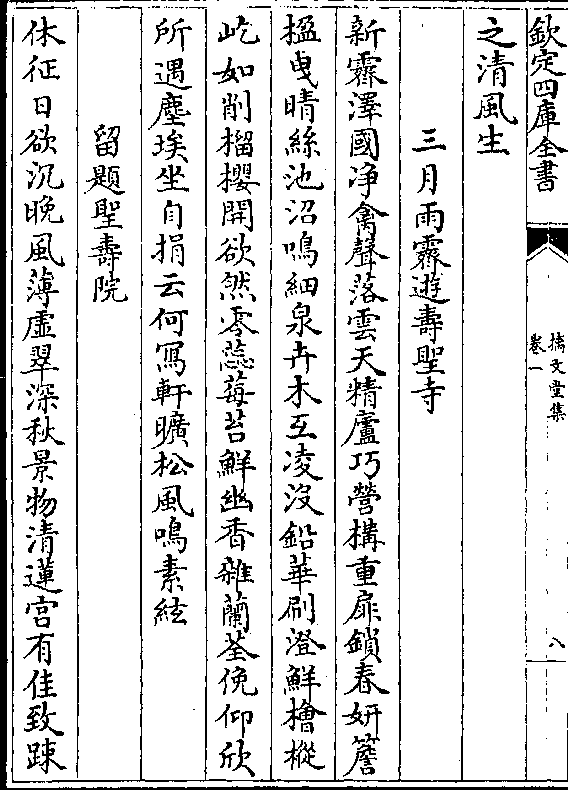 欽定四庫全書
摛文堂集
卷一
八
之清風生
三月雨霽遊壽聖寺
新霽澤國净禽聲落雲天精廬巧營搆重扉鎖春妍簷
楹曳晴絲池沼鳴細泉卉木互凌沒鉛華刷澄鮮檜樅
屹如削榴櫻開欲然零蕊莓苔鮮幽香雜蘭荃俛仰欣
所遇塵埃坐自捐云何寫軒曠松風鳴素絃
留題聖壽院
休征日欲沉晚風薄虛翠深秋景物清蓮宫有佳致踈